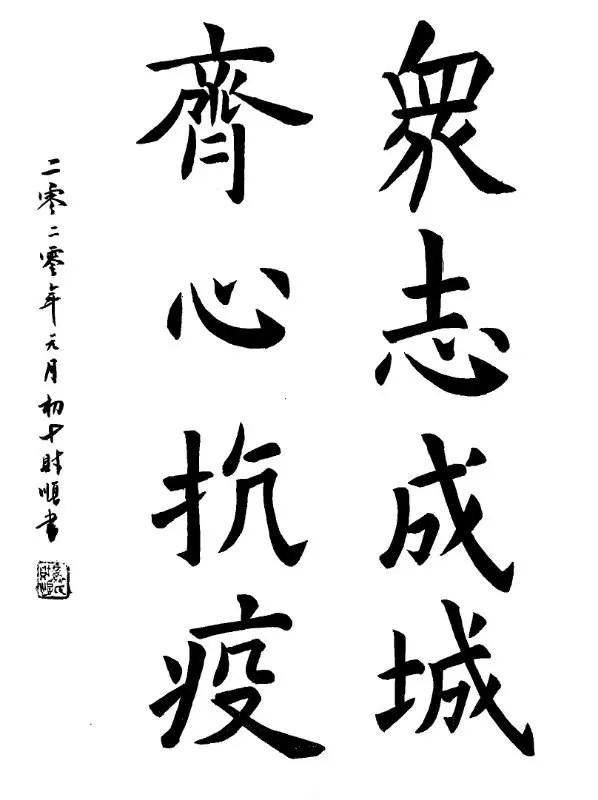 眾志成城
齊心抗疫
二零二零年元月初十財順書